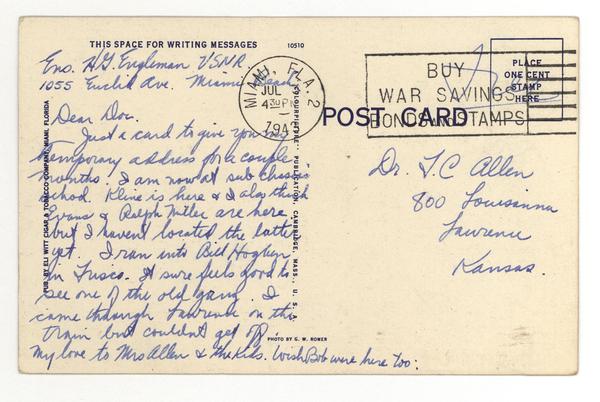 THIS SPACE FOR WRITING MESSAGES
10510
Ens. H.G. Engleman USNR.
1055 Euclid Ave. Miami Beach
Dear Doc.
Just a card to give you my
temporary address for a couple
months. I am now at sub chaser
school. Kline is here & I also think
Evans & Ralph Miller are here
but I havent located the latter
yet. I ran into Bill Hogben
in Frisco. It sure feels good to
see one of the old gang. I
came through Lawrence on the
train but couldn't get off.
My love to Mrs Allen & the Kids. Wish Bob were here too.
PUB. BY ELI WITT CIGAR & TOBACCO COMPANY, MIAMI, FLORIDA
"COLOURPICTURE" PUBLICATION, CAMBRIDGE, MASS., U. S. A.
PHOTO BY G. W. ROMER
MIAMI, FLA. 2
JUL
4 30 PM
BUY
WAR SAVINGS
BONDS AND STAMPS
PLACE
ONE CENT
STAMP
HERE
Free
POST CARD
Dr. F.C Allen
800 Louisianna
Lawrence
Kansas.